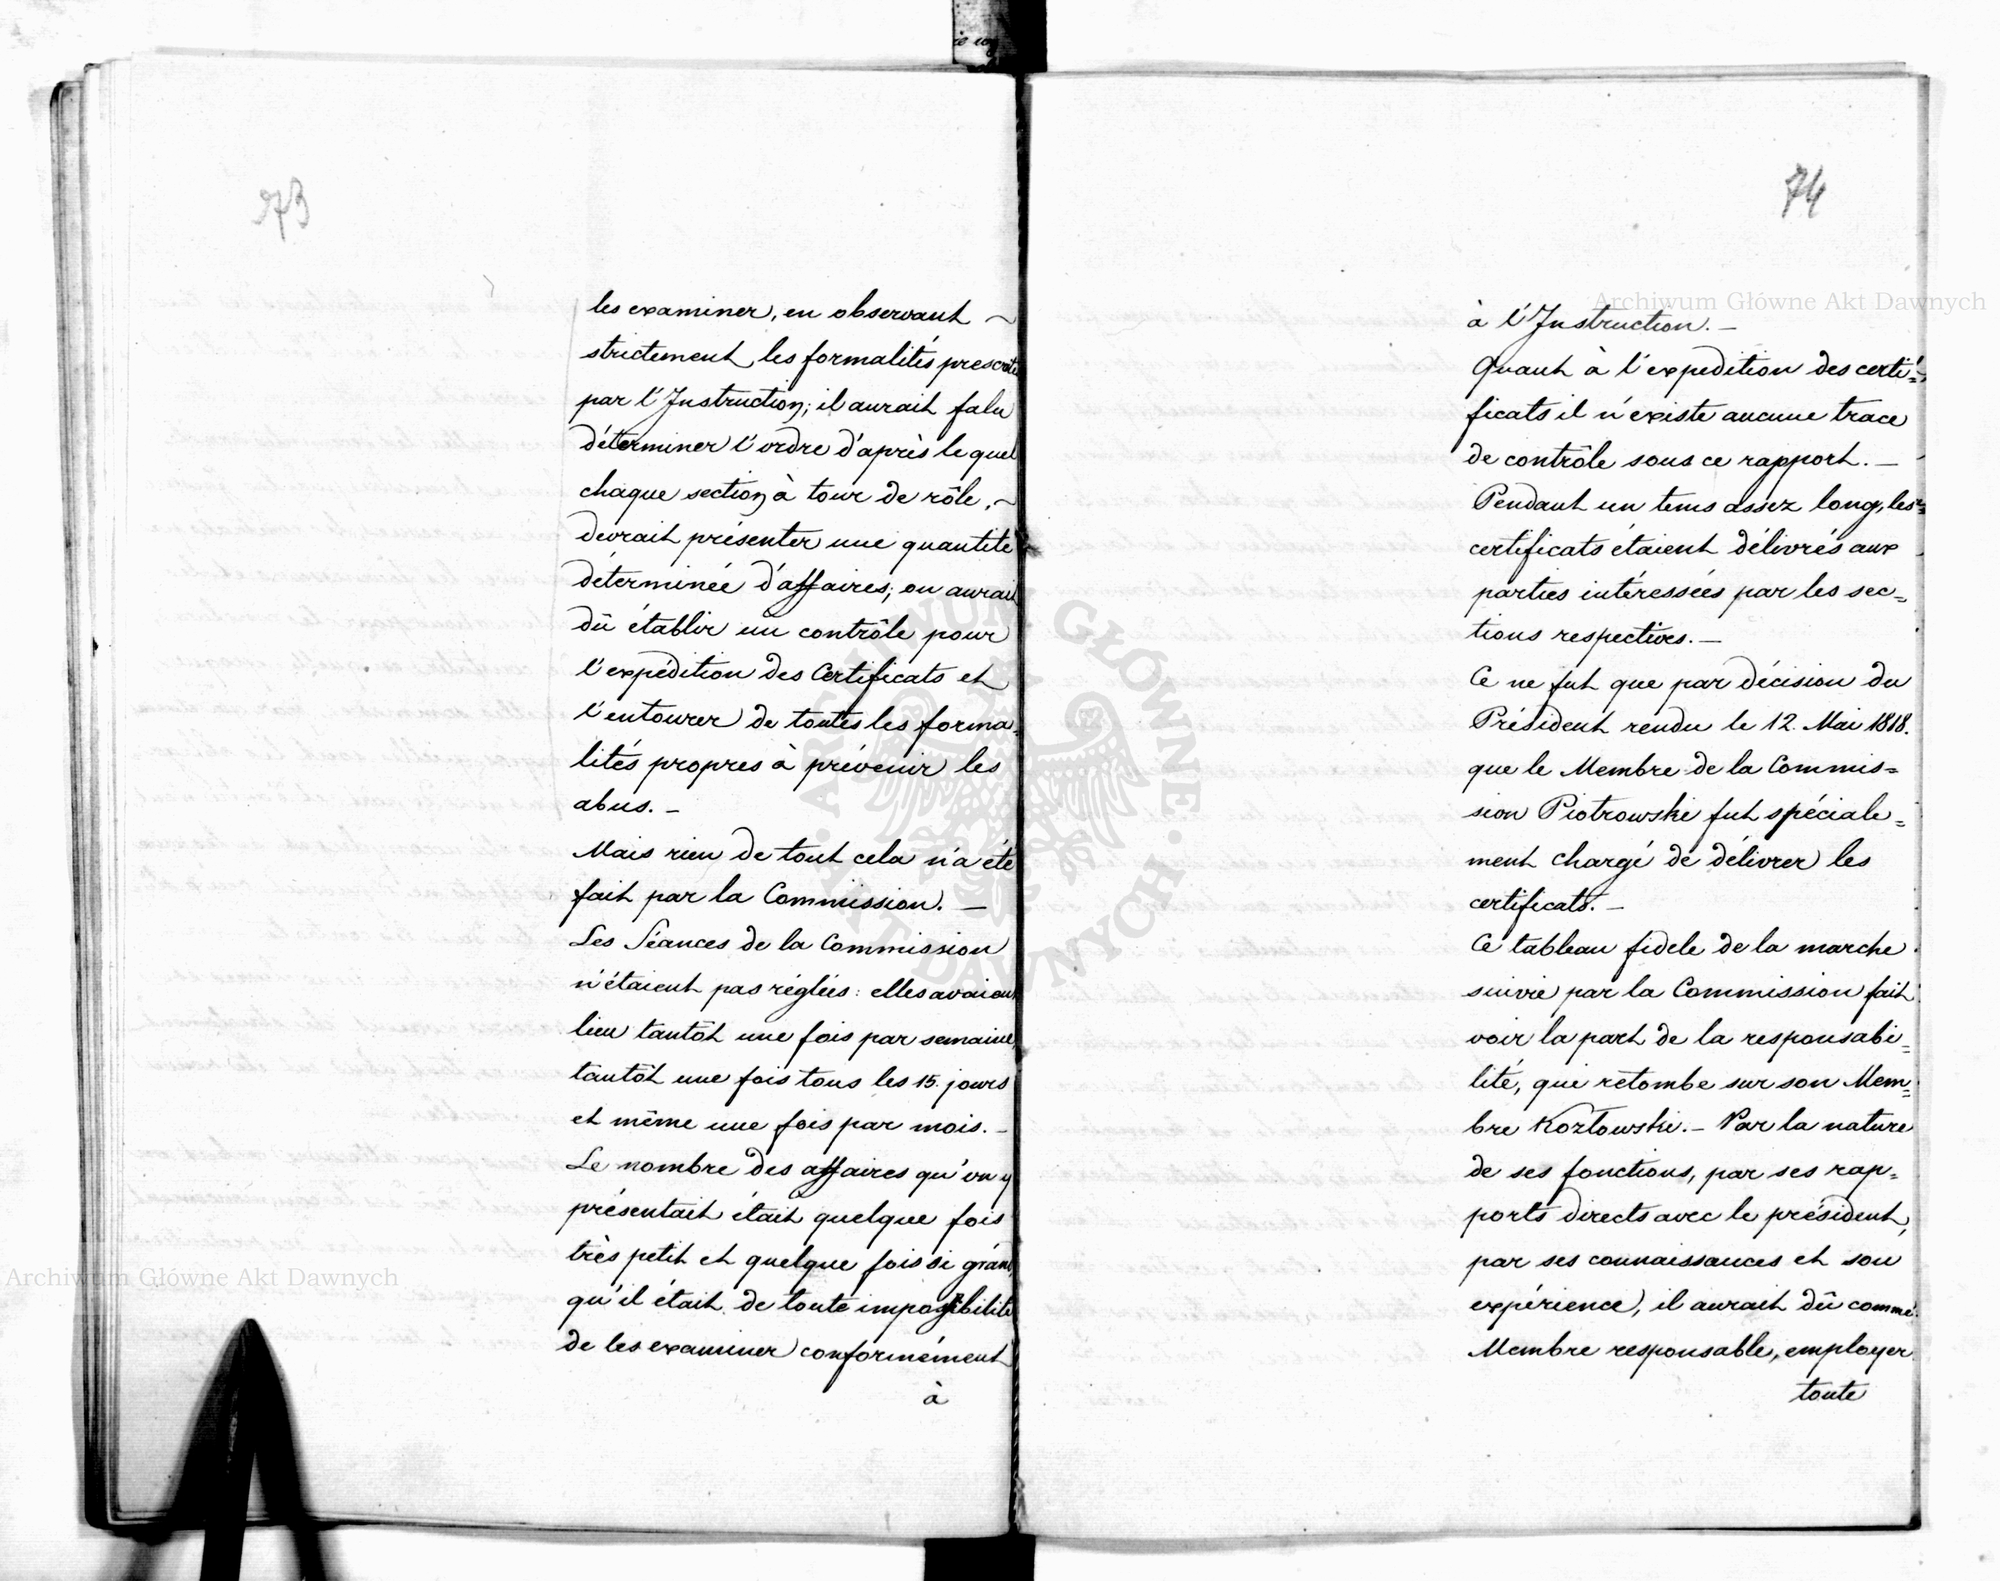 73
les examiner, en observant
strictement les formalités prescrites
par l'Instruction; il aurait falu
déterminer l'ordre d'après le quel
chaque section à tour de rôle,
devrait présenter une quantité
déterminée d'affaires; on aurait
dû établir un contrôle pour
l'expédition des Certificats et
l'entourer de toutes les forma=
lités propres à prévenir les
abus. –
Mais rien de tout cela n'a été
fait par la Commission. –
Les Séances de la Commission
n'étaient pas réglées: elles avaient
lieu tantôt une fois par semaine,
tantôt une fois tous les 15. jours
et même une fois par mois. –
Le nombre des affaires qu'on y
présentait était quelque fois
très petit et quelque fois si grand,
qu'il était de toute impossibilité
de les examiner conformément
à
74
à l'Instruction. –
Quant à l'expedition des certi=
ficats il n'existe aucune trace
de contrôle sous ce rapport. –
Pendant un tems assez long, les
certificats étaient délivrés aux
parties intéressées par les sec=
tions respectives. –
Ce ne fut que par décision du
Président rendu le 12. Mai 1818.
que le Membre de la Commis=
sion Piotrowski fut spéciale=
ment chargé de délivrer les
certificats. –
Ce tableau fidele de la marche
suivie par la Commission fait
voir la part de la responsabi=
lité, qui retombe sur son Mem=
bre Kozłowski. – Par la nature
de ses fonctions, par ses rap=
ports directs avec le président,
par ses connaissances et son
expérience, il aurait dû comme
Membre responsable, employer
toute
Archiwum Główne Akt Dawnych
Archiwum Główne Akt Dawnych
ARCHIWUM GŁÓWNE AKT DAWNYCH